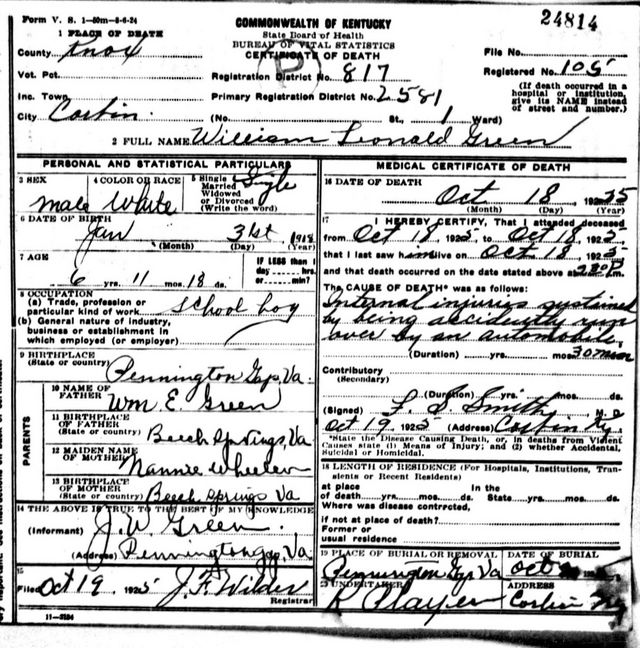 Form V. S. 1-50m-5-6-24
24814
COMMONWEALTH OF KENTUCKY
State Board of Health
BUREAU OF VITAL STATISTICS
CERTIFICATE OF DEATH
1 PLACE OF DEATH
County Knox
File No.
Vot. Pct.
Registration District No. 817
Registered No. 105
Inc. Town
Primary Registration District No. 2581
(If death occurred in a hospital or institution, give its NAME instead of street and number.)
City Corbin (No. St., 1 Ward)
2 FULL NAME William Leonald Green
PERSONAL AND STATISTICAL PARTICULARS
3 SEX male
4 COLOR OR RACE White
5 Single Married Widowed or Divorced (Write the word) Single
6 DATE OF BIRTH
Jan 31st 1918
(Month) (Day) (Year)
7 AGE
6 yrs. 11 mos. 18 ds.
IF LESS than 1 day hrs. or min?
8 OCCUPATION
(a) Trade, profession or particular kind of work school boy
(b) General nature of industry, business or establishment in which employed (or employer)
9 BIRTHPLACE
(State or country)
Pennington Gap, Va.
PARENTS
10 NAME OF FATHER
Wm E. Green
11 BIRTHPLACE OF FATHER
(State or country) Beech Springs, Va
12 MAIDEN NAME OF MOTHER Nannie Wheeler
13 BIRTHPLACE OF MOTHER
(State or country) Beech Springs Va
14 THE ABOVE IS TRUE TO THE BEST OF MY KNOWLEDGE
(Informant) J. W. Green
(Address) Pennington Gap, Va.
15
Filed Oct 19 1925 J. F. Wilder
Registrar
11-3184
MEDICAL CERTIFICATE OF DEATH
16 DATE OF DEATH
Oct 18, 1925
(Month) (Day) (Year)
17 I HEREBY CERTIFY, That I attended deceased
from Oct 18 1925 to Oct 18, 1925
that I last saw him alive on Oct 18 1925
and that death occurred on the date stated above at
The CAUSE OF DEATH* was as follows:
Internal injuries sustained
by being accidently run
over by an automobile,
(Duration) yrs. mos. 30 min
Contributory
(Secondary)
(Duration) yrs. mos. ds.
(Signed) L. S. Smith, M. D
Oct 19 1925 (Address) Corbin Ky
*State the Disease Causing Death, or, in deaths from Violent Causes state (1) Means of Injury; and (2) whether Accidental, Suicidal or Homicidal.
18 LENGTH OF RESIDENCE (For Hospitals, Institutions, Transients or Recent Residents)
at place of death yrs. mos. ds. In the State yrs. mos. ds.
Where was disease contrected,
if not at place of death?
Former or
usual residence
19 PLACE OF BURIAL OR REMOVAL
Pennington Gap Va
DATE OF BURIAL
Oct
20 UNDERTAKER
ADDRESS
Corbin Ky